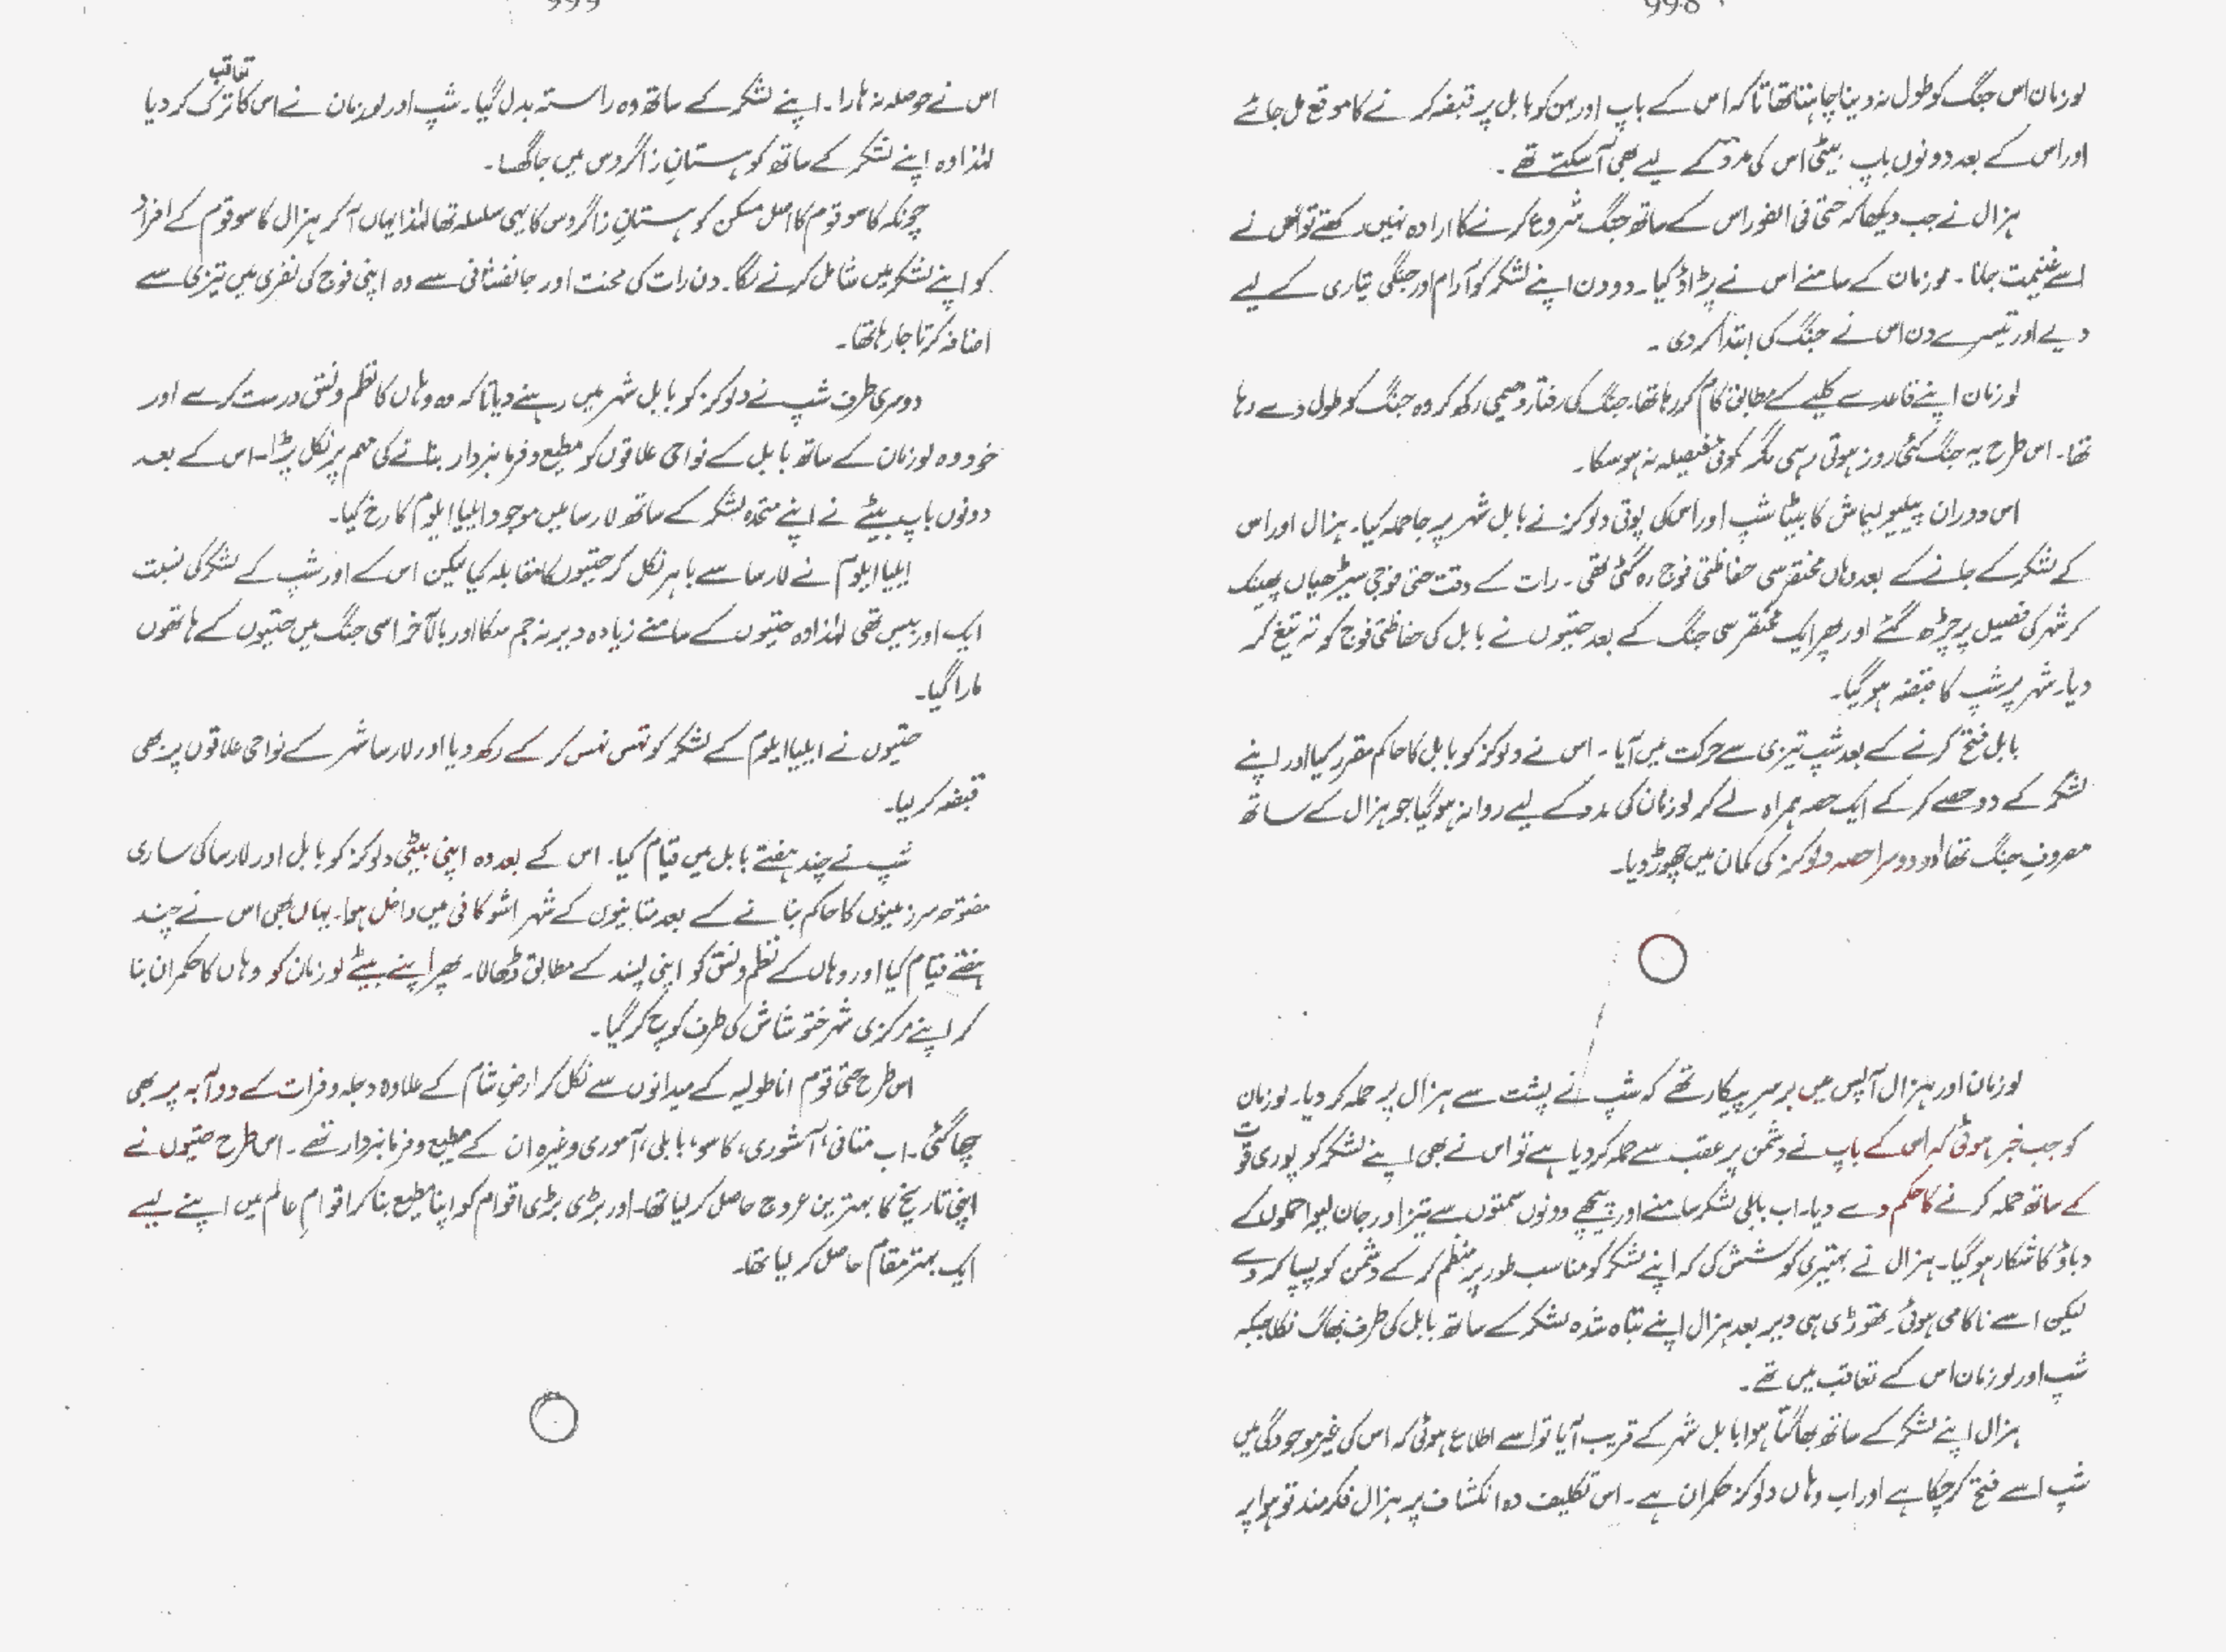 998
لوزنان اس جنگ کو طول نہ دینا چاہتا تھا تا کہ اس کے باپ اور بہن کو بابل پر قبضہ کرنے کا موقع مل جائے
اور اس کے بعد دونوں باپ بیٹی اس کی مدد کے لیے بھی آ سکتے تھے۔
ہزال نے جب دیکھا کہ حتی فی الفور اس کے ساتھ جنگ شروع کرنے کا ارادہ نہیں رکھتے تو اس نے
اسے غنیمت جانا۔ لوزنان کے سامنے اس نے پڑاؤ کیا۔ دو دن اپنے لشکر کو آرام اور جنگی تیاری کے لیے
دیے اور تیسرے دن اس نے جنگ کی ابتدا کر دی۔
لوزنان اپنے قاعدے کلیے کے مطابق کام کر رہا تھا۔ جنگ کی رفتار دھیمی رکھ کر وہ جنگ کو طول دے رہا
تھا۔ اس طرح یہ جنگ کئی روز ہوتی رہی مگر کوئی فیصلہ نہ ہو سکا۔
اس دوران پیلیولیماش کا بیٹا شپ اور اس کی پوتی دلوکز نے بابل شہر پر جا حملہ کیا۔ ہزال اور اس
کے لشکر کے جانے کے بعد وہاں مختصر سی حفاظتی فوج رہ گئی تھی۔ رات کے وقت حتی فوجی سیڑھیاں پھینک
کر شہر کی فصیل پر چڑھ گئے اور پھر ایک مختصر سی جنگ کے بعد حتیوں نے بابل کی حفاظتی فوج کو تہ تیغ کر
دیا۔ شہر پر شپ کا قبضہ ہو گیا۔
بابل فتح کرنے کے بعد شپ تیزی سے حرکت میں آیا۔ اس نے دلوکز کو بابل کا حاکم مقرر کیا اور اپنے
لشکر کے دو حصے کر کے ایک حصہ ہمراہ لے کر لوزنان کی مدد کے لیے روانہ ہو گیا جو ہزال کے ساتھ
مصروفِ جنگ تھا اور دوسرا حصہ دلوکز کی کمان میں چھوڑ دیا۔
لوزنان اور ہزال آپس میں برسرِ پیکار تھے کہ شپ نے پشت سے ہزال پر حملہ کر دیا۔ لوزنان
کو جب خبر ہوئی کہ اس کے باپ نے دشمن پر عقب سے حملہ کر دیا ہے تو اس نے بھی اپنے لشکر کو پوری قوت
کے ساتھ حملہ کرنے کا حکم دے دیا۔ اب بابلی لشکر سامنے اور پیچھے دونوں سمتوں سے تیز اور جان لیوا حملوں کے
دباؤ کا شکار ہو گیا۔ ہزال نے بہتیری کوشش کی کہ اپنے لشکر کو مناسب طور پر منظم کر کے دشمن کو پسپا کر دے
لیکن اسے ناکامی ہوئی۔ تھوڑی ہی دیر بعد ہزال اپنے تباہ شدہ لشکر کے ساتھ بابل کی طرف بھاگ نکلا جبکہ
شپ اور لوزنان اس کے تعاقب میں تھے۔
ہزال اپنے لشکر کے ساتھ بھاگتا ہوا بابل شہر کے قریب آیا تو اسے اطلاع ہوئی کہ اس کی غیر موجودگی میں
شپ اسے فتح کر چکا ہے اور اب وہاں دلوکز حکمران ہے۔ اس تکلیف دہ انکشاف پر ہزال فکرمند تو ہوا پر
999
اس نے حوصلہ نہ ہارا۔ اپنے لشکر کے ساتھ وہ راستہ بدل گیا۔ شپ اور لوزنان نے اس کا تعاقب ترک کر دیا
لہٰذا وہ اپنے لشکر کے ساتھ کوہستانِ زاگروس میں جا گھسا۔
چونکہ کاسو قوم کا اصل مسکن کوہستانِ زاگروس کا یہی سلسلہ تھا لہٰذا یہاں آ کر ہزال کاسو قوم کے افراد
کو اپنے لشکر میں شامل کرنے لگا۔ دن رات کی محنت اور جانفشانی سے وہ اپنی فوج کی نفری میں تیزی سے
اضافہ کرتا جا رہا تھا۔
دوسری طرف شپ نے دلوکز کو بابل شہر میں رہنے دیا تا کہ وہ وہاں کا نظم و نسق درست کرے اور
خود وہ لوزنان کے ساتھ بابل کے نواحی علاقوں کو مطیع و فرمانبردار بنانے کی مہم پر نکل پڑا۔ اس کے بعد
دونوں باپ بیٹے نے اپنے متحدہ لشکر کے ساتھ لارسا میں موجود ایلیا ایلوم کا رخ کیا۔
ایلیا ایلوم نے لارسا سے باہر نکل کر حتیوں کا مقابلہ کیا لیکن اس کے اور شپ کے لشکر کی نسبت
ایک اور بیس تھی لہٰذا وہ حتیوں کے سامنے زیادہ دیر نہ جم سکا اور بالآخر اسی جنگ میں حتیوں کے ہاتھوں
مارا گیا۔
حتیوں نے ایلیا ایلوم کے لشکر کو تہس نہس کر کے رکھ دیا اور لارسا شہر کے نواحی علاقوں پر بھی
قبضہ کر لیا۔
شپ نے چند ہفتے بابل میں قیام کیا۔ اس کے بعد وہ اپنی بیٹی دلوکز کو بابل اور لارسا کی ساری
مفتوحہ سرزمینوں کا حاکم بنانے کے بعد متانیوں کے شہر اشوکانی میں داخل ہوا۔ یہاں بھی اس نے چند
ہفتے قیام کیا اور وہاں کے نظم و نسق کو اپنی پسند کے مطابق ڈھالا۔ پھر اپنے بیٹے لوزنان کو وہاں کا حکمران بنا
کر اپنے مرکزی شہر ختوشاش کی طرف کوچ کر گیا۔
اس طرح حتی قوم اناطولیہ کے میدانوں سے نکل کر ارضِ شام کے علاوہ دجلہ و فرات کے دوآبہ پر بھی
چھا گئی۔ اب متانی، آشوری، کاسو، بابلی، آموری وغیرہ ان کے مطیع و فرمانبردار تھے۔ اس طرح حتیوں نے
اپنی تاریخ کا بہترین عروج حاصل کر لیا تھا۔ اور بڑی بڑی اقوام کو اپنا مطیع بنا کر اقوامِ عالم میں اپنے لیے
ایک بہتر مقام حاصل کر لیا تھا۔